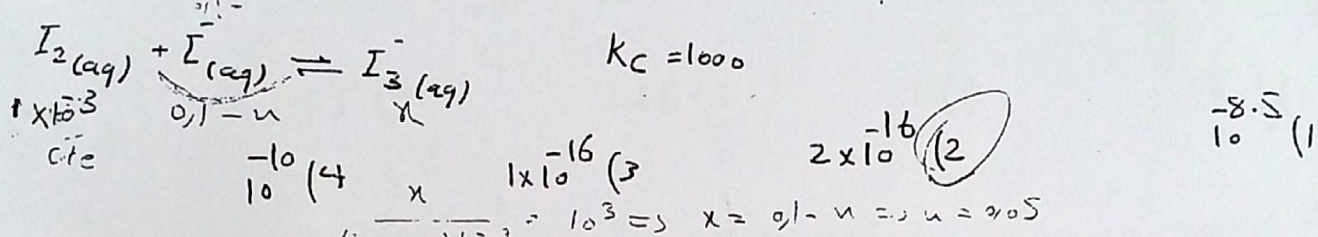 I₂(aq) + I⁻(aq) ⇌ I₃⁻(aq)    Kc = 1000
1×10⁻³    0,1-x    x
cte
10⁻⁸·⁵ (1    2×10⁻¹⁶ (2    1×10⁻¹⁶ (3    10⁻¹⁰ (4
x = 10³ => x = 0,1-x => x = 0,05